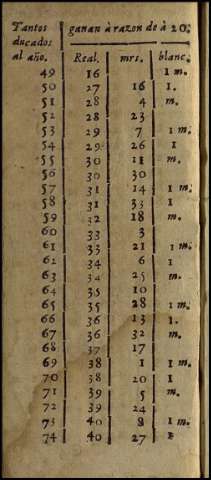 Tantos ganan à razon de à 20.
ducados
al año. Real. mrs. blanc.
49 16 1 m.
50 27 16 1.
51 28 4 m.
52 28 23
53 29 7 1 m.
54 29 26 1
55 30 11 m.
56 30 30
57 31 14 1 m
58 31 33 1
59 32 18 m.
60 33 3
61 33 21 1 m.
62 34 6 1
63 34 25 m.
64 35 10
65 35 28 1 m.
66 36 13 1.
67 36 32 m.
68 37 17
69 38 1 1 m.
70 38 20 1
71 39 5 m.
72 39 24
73 40 8 1 m.
74 40 27 1